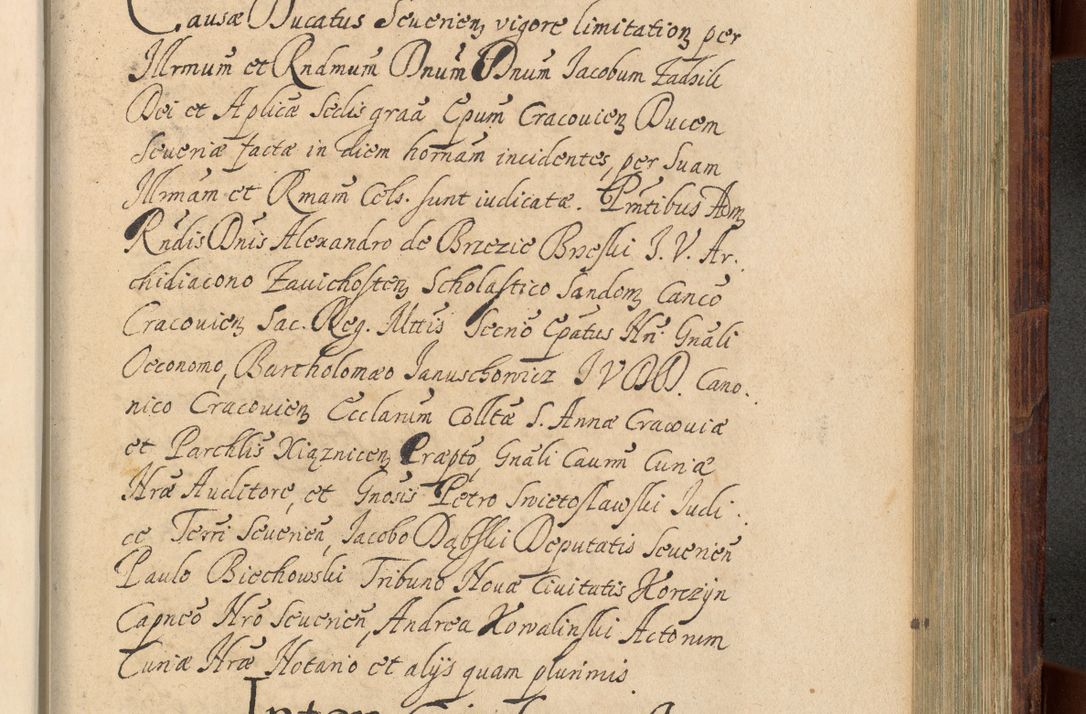 Causæ Ducatus Severien, vigore limitation per
Illrmum et Rndmum Dnum Dnum Jacobum Zadsili
Dei et Aplicæ Sedis graã Epum Cracovien Ducem
Severiæ factæ in diem hornam incidentes, per Suam
Illrmam et Rmam Cels. sunt iudicatæ. Pntibus Adm
Rndis Dnis Alexandro de Brzezie Brzeski J. V. Ar.
chidiacono Zavichosten, Scholastico Sandom, Canco
Cracovien Sac. Reg. Mttis Secrio Epatus Nri Gnali
Oeconomo, Bartholomæo Januschowicz J V D D. Cano.
nico Cracovien Ecclarum Colltæ S. Annæ Cracoviæ
et Parchlis Xiąznicen Præpto, Gnali Caurm Curiæ
Nræ Auditore, et Gnosis Petro Swietoslawski Judi.
ce Terri Severien, Jacobo Dąbski Deputatis Severien
Paulo Biechowski Tribuno Novæ Civitatis Korczyn
Capneo Nro Severien, Andrea Kowalinski Actorum
Curiæ Nræ Notario et alijs quam plurimis